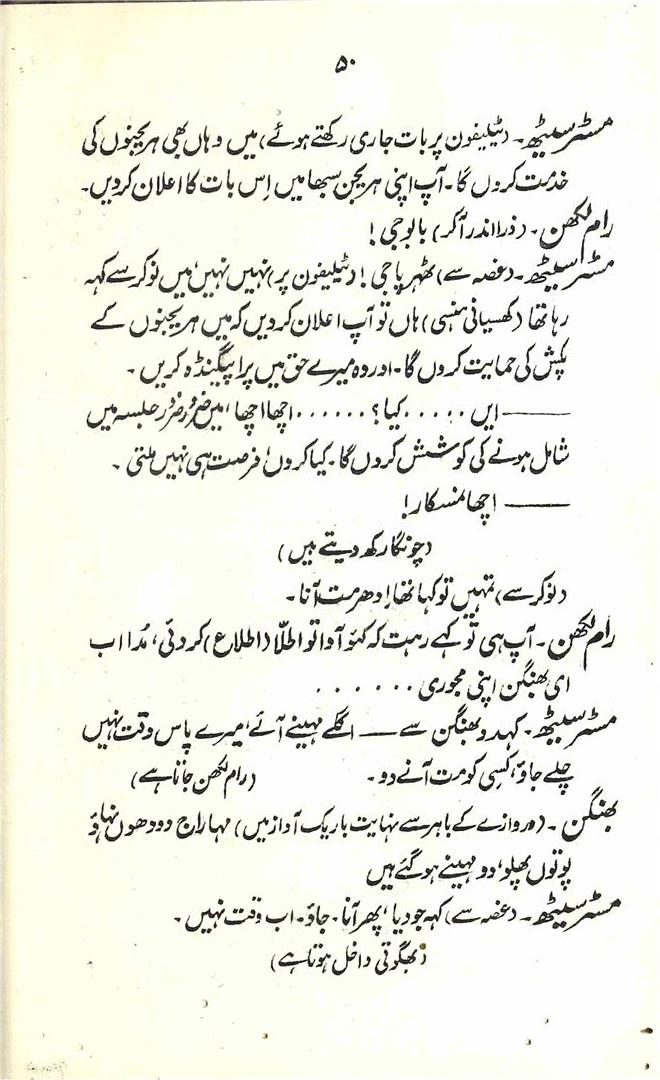 ۵۰
مسٹر سیٹھ۔ (ٹیلیفون پر بات جاری رکھتے ہوئے) میں وہاں بھی ہریجنوں کی
خدمت کروں گا۔ آپ اپنی ہریجن سبھا میں اِس بات کا اعلان کر دیں۔
رام لکھن۔ (ذرا اندر آکر) بابو جی!
مسٹر سیٹھ۔ (غصہ سے) ٹھہر پاجی! (ٹیلیفون پر) نہیں نہیں، میں نوکر سے کہہ
رہا تھا (کھسیانی ہنسی) ہاں تو آپ اعلان کر دیں کہ میں ہریجنوں کے
پکش کی حمایت کروں گا۔ اور وہ میرے حق میں پراپیگنڈہ کریں۔
—— ایں ..... کیا؟ ...... اچھا اچھا، میں ضرور ضرور جلسہ میں
شامل ہونے کی کوشش کروں گا۔ کیا کروں، فرصت ہی نہیں ملتی۔
—— اچھا نمسکار!
(چونگا رکھ دیتے ہیں)
(نوکر سے) تمہیں تو کہا تھا اِدھر مت آنا۔
رام لکھن۔ آپ ہی تو کہے رہت کہ کئو آوا تو اطلّا (اطلاع) کر دئی، مُدا اب
ای بھنگن اپنی مجوری ......
مسٹر سیٹھ۔ کہدو بھنگن سے —— اگلے مہینے آئے، میرے پاس وقت نہیں
چلے جاؤ، کسی کو مت آنے دو۔ (رام لکھن جاتا ہے)
بھنگن۔ (دروازے کے باہر سے نہایت باریک آواز میں) مہاراج دودھوں نہاؤ
پوتوں پھلو، دو مہینے ہو گئے ہیں
مسٹر سیٹھ۔ (غصہ سے) کہہ جو دیا، پھر آنا۔ جاؤ۔ اب وقت نہیں۔
(بھگوتی داخل ہوتا ہے)